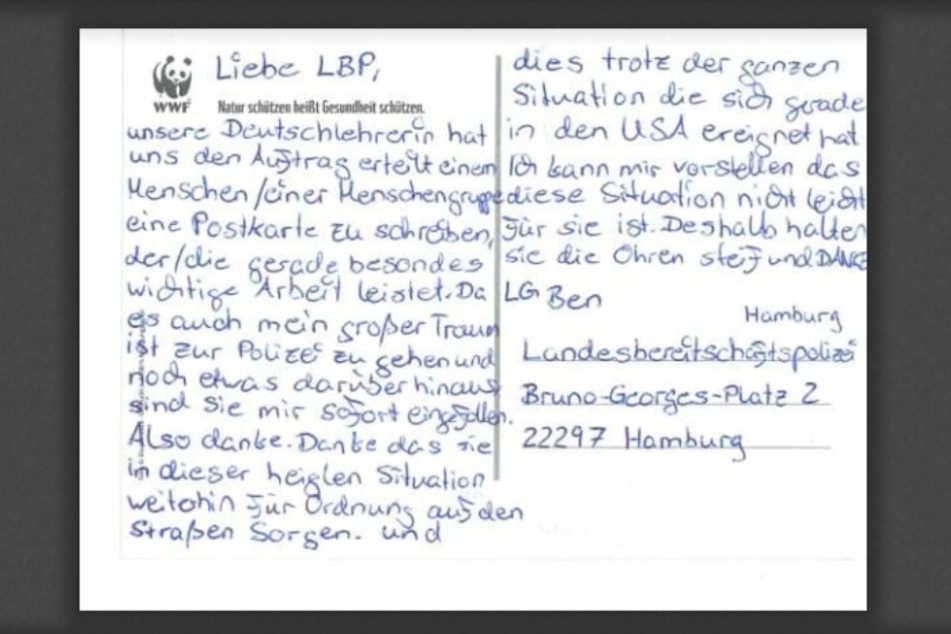 WWF
Natur schützen heißt Gesundheit schützen.
Liebe LBP,
unsere Deutschlehrerin hat
uns den Auftrag erteilt einem
Menschen/einer Menschengruppe
eine Postkarte zu schreiben,
der/die gerade besondes
wichtige Arbeit leistet. Da
es auch mein großer Traum
ist zur Polizei zu gehen und
noch etwas darüber hinaus
sind Sie mir sofort eingefallen.
Also danke. Danke das sie
in dieser heiglen Situation
weitohin für Ordnung auf den
Straßen Sorgen. und
dies trotz der ganzen
Situation die sich gerade
in den USA ereignet hat
Ich kann mir vorstellen das
diese Situation nicht leicht
für sie ist. Deshalb halten
sie die Ohren steif und DANKE
LG Ben
Hamburg
Landesbereitschaftspolizei
Bruno-Georges-Platz 2
22297 Hamburg